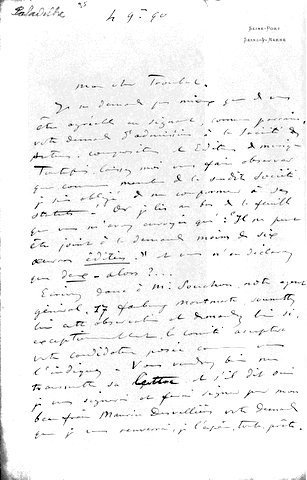 Paladilhe
4 9bre 90
Seine-Port
Seine-&-Marne
mon cher Troubat,
Je ne demande pas mieux que de vous
être agréable en signant, comme parrain,
votre demande d'admission à la Société des
Auteurs, compositeurs et Editeurs de musique
Toutefois laissez moi vous faire observer
que comme membre de la susdite Société
je suis obligé de me conformer à ses
statuts - Or je lis au bas de la feuille
que vous m'avez envoyée qu'"Il ne peut
être joint à la demande moins de six
œuvres éditées." et vous n'en déclarez
que deux - alors?...
Ecrivez donc à Mr Souchon, notre agent
général, 17 faubourg Montmartre soumettez
lui cette observation et demandez lui si,
exceptionnellement, le comité acceptera
votre candidature posée comme vous
l'indiquez - Vous voudrez bien me
transmettre sa lettre et s'il dit oui
je vous signerai et ferai signer par mon
beau frère Maurice Desvallières votre demande
que je vous renverrai, je l'espère, toute prête.